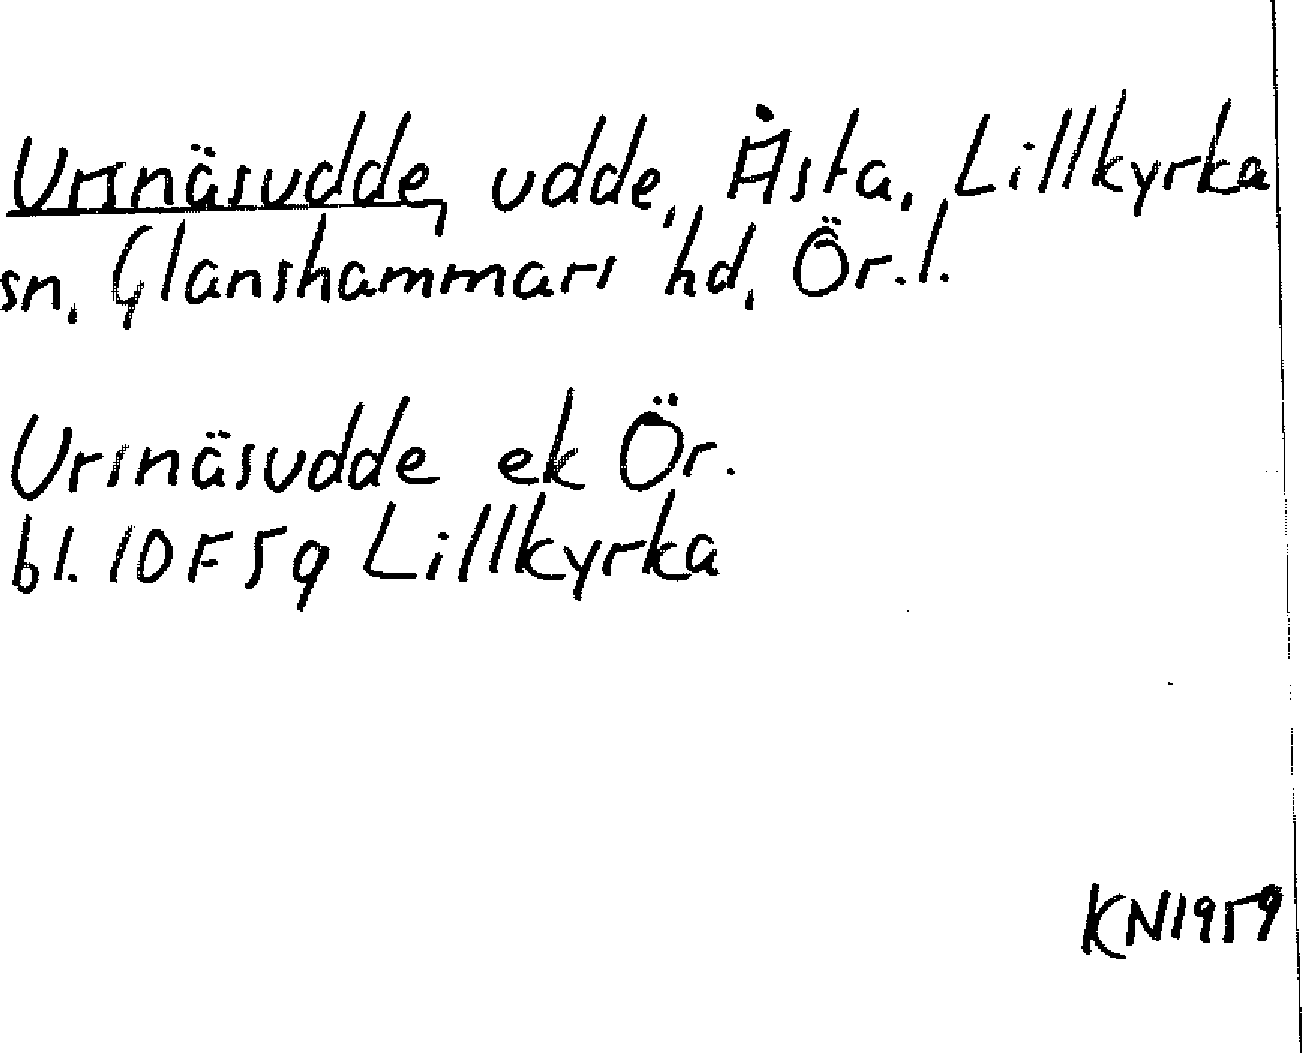 Ursnäsudde, udde, Åsta, Lillkyrka
sn. Glanshammars hd, Ör. l.
Ursnäsudde ek Ör.
bl. 10F5g Lillkyrka
KN1959